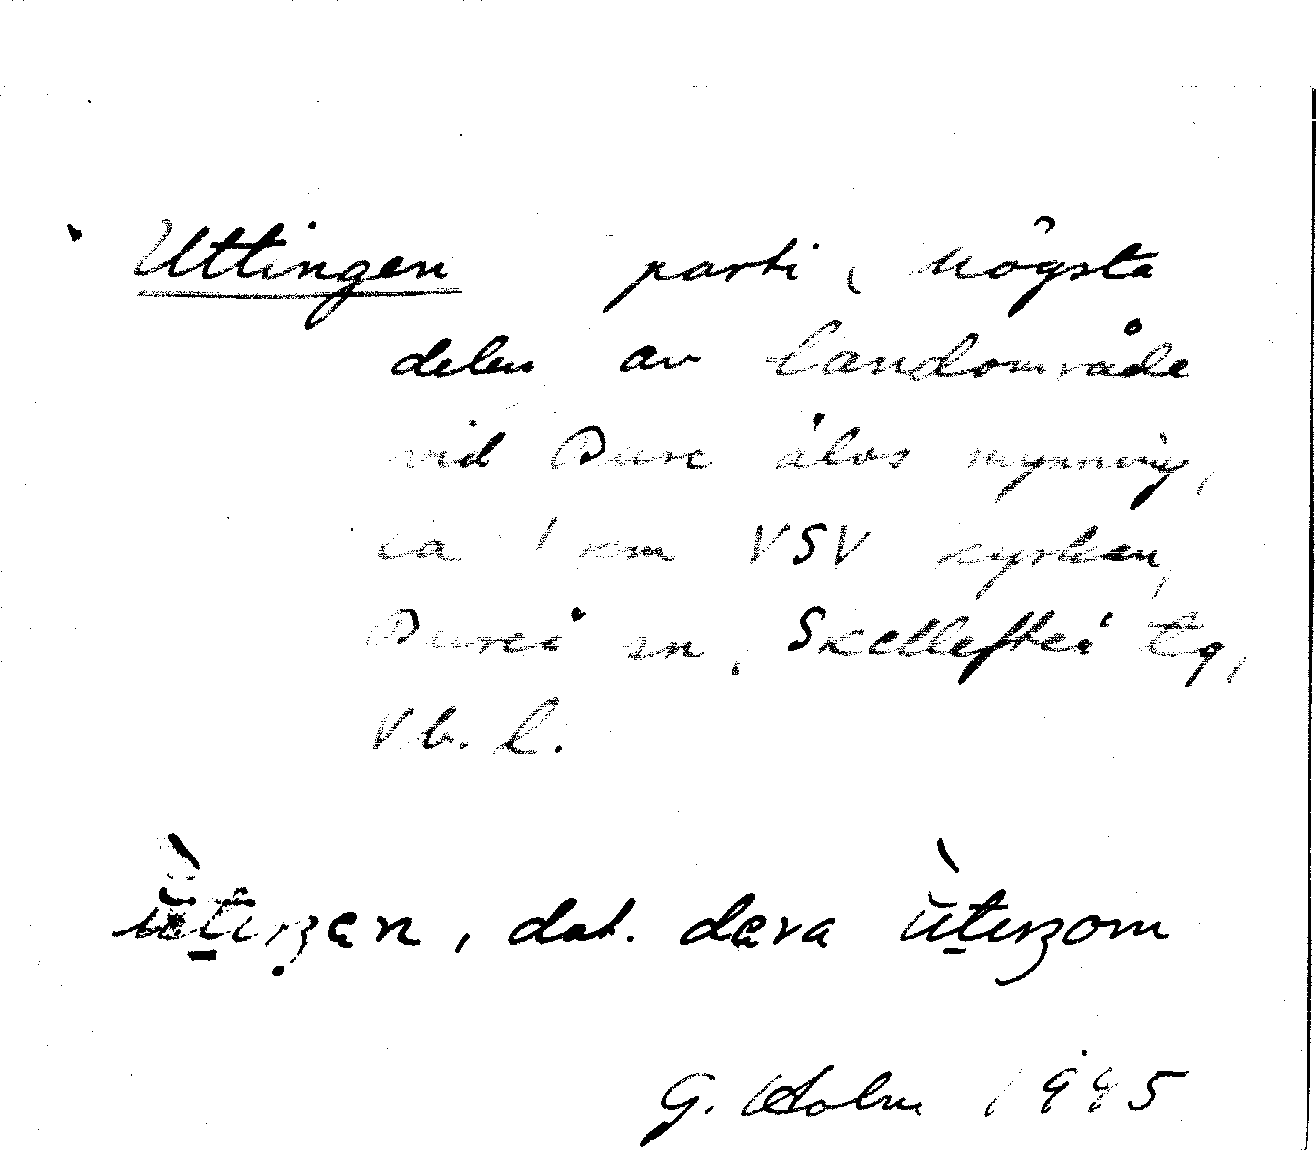 Uttingen parti i högsta
delen av landområde
vid Bure älvs mynning,
ca 1 km VSV kyrkan,
Bureå sn, Skellefteå tg,
Vb. l.
dat. dɐra
G. Holm 1945